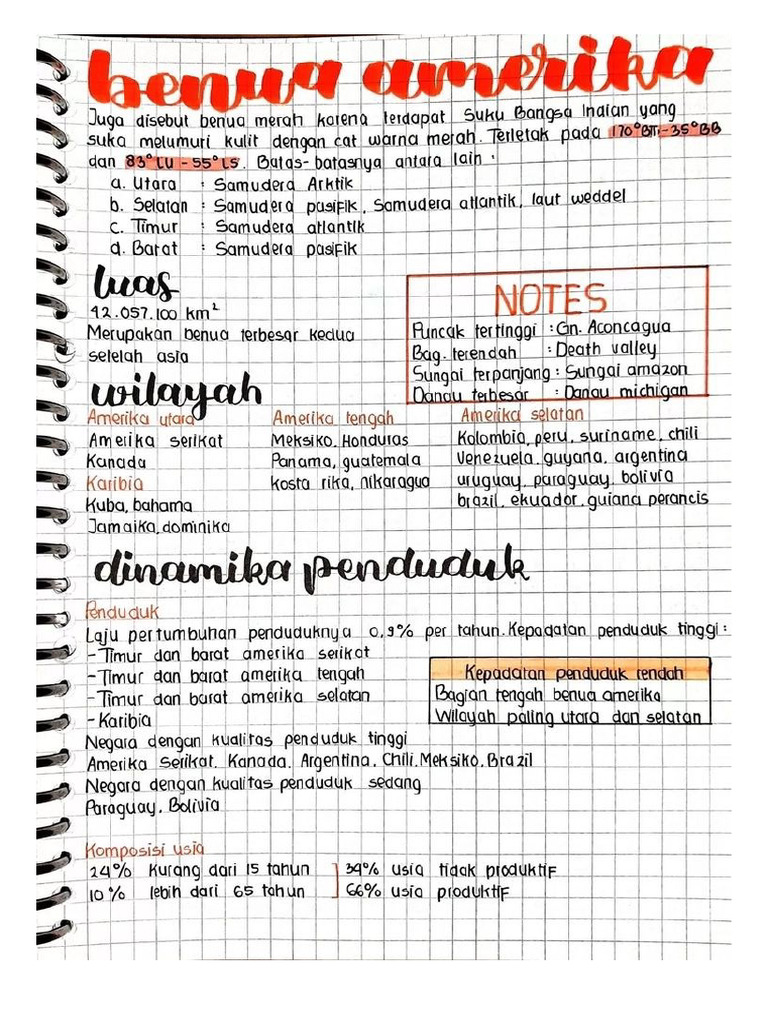 benua amerika
Juga disebut benua merah karena terdapat Suku Bangsa Indian yang
suka melumuri kulit dengan cat warna merah. Terletak pada 170°BT-35°BB
dan 83°LU-55°LS. Batas-batasnya antara lain :
a. Utara : Samudera Arktik
b. Selatan : Samudera pasifik, Samudera atlantik, laut weddel
c. Timur : Samudera atlantik
d. Barat : Samudera pasifik
luas
42.057.100 km²
Merupakan benua terbesar kedua
setelah asia
NOTES
Puncak tertinggi : Gn. Aconcagua
Bag. terendah : Death valley
Sungai terpanjang : Sungai amazon
Danau terbesar : Danau michigan
wilayah
Amerika utara
Amerika serikat
Kanada
Karibia
Kuba, bahama
Jamaika, dominika
Amerika tengah
Meksiko, Honduras
Panama, guatemala
kosta rika, nikaragua
Amerika selatan
Kolombia, peru, suriname, chili
Venezuela, guyana, argentina
uruguay, paraguay, bolivia
brazil, ekuador, guiana perancis
dinamika penduduk
Penduduk
Laju pertumbuhan penduduknya 0,9% per tahun. Kepadatan penduduk tinggi :
- Timur dan barat amerika serikat
- Timur dan barat amerika tengah
- Timur dan barat amerika selatan
- Karibia
Kepadatan penduduk rendah
Bagian tengah benua amerika
Wilayah paling utara dan selatan
Negara dengan kualitas penduduk tinggi
Amerika Serikat, Kanada, Argentina, Chili, Meksiko, Brazil
Negara dengan kualitas penduduk sedang
Paraguay, Bolivia
Komposisi usia
24% kurang dari 15 tahun
10% lebih dari 65 tahun
34% usia tidak produktif
66% usia produktif